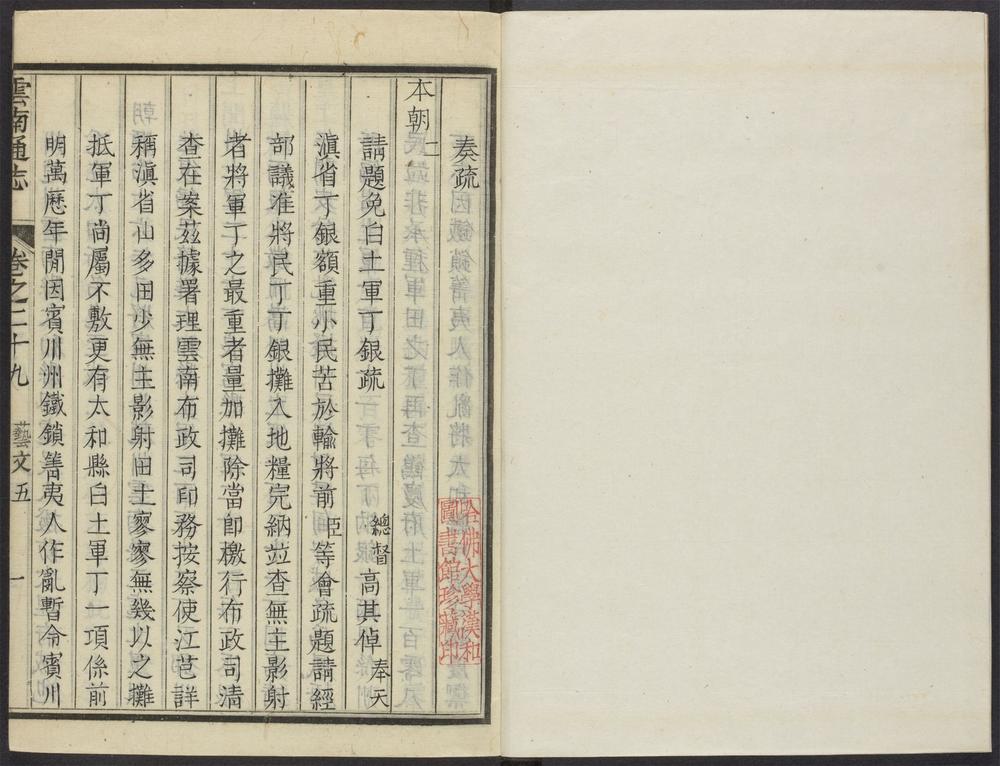 奏疏
本朝二
請題免白土軍丁銀疏 總督高其倬奉天
滇省丁銀額重小民苦於輸將前臣等會疏題請經
部議准將民丁丁銀攤入地糧完納並查無主影射
者將軍丁之最重者量加攤除當卽檄行布政司清
查在案茲據署理雲南布政司印務按察使江芑詳
稱滇省山多田少無主影射田土寥寥無幾以之攤
抵軍丁尚屬不敷更有太和縣白土軍丁一項係前
明萬歷年閒因賓川州鐵鎖箐夷人作亂暫令賓川
雲南通志 卷之二十九 藝文五 一
哈佛大學漢和
圖書館珍藏印